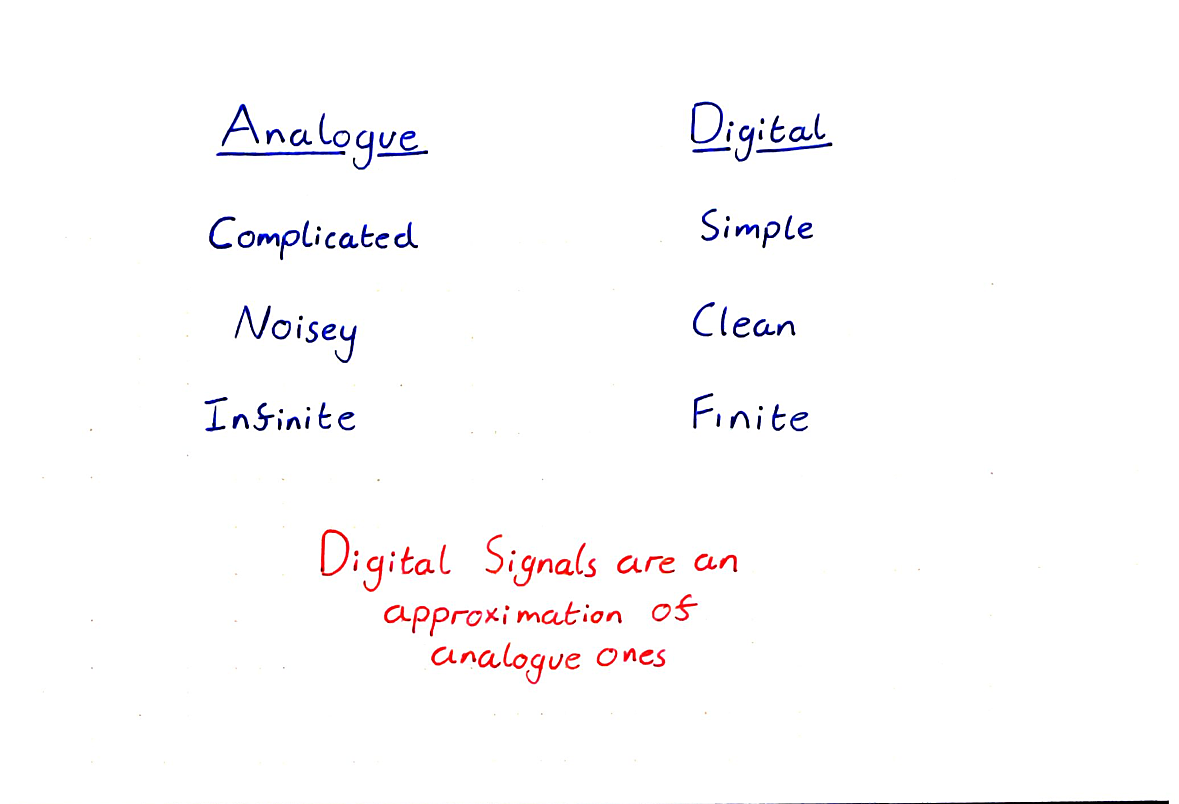 Analogue Digital
Complicated Simple
Noisey Clean
Infinite Finite
Digital Signals are an
approximation of
analogue ones